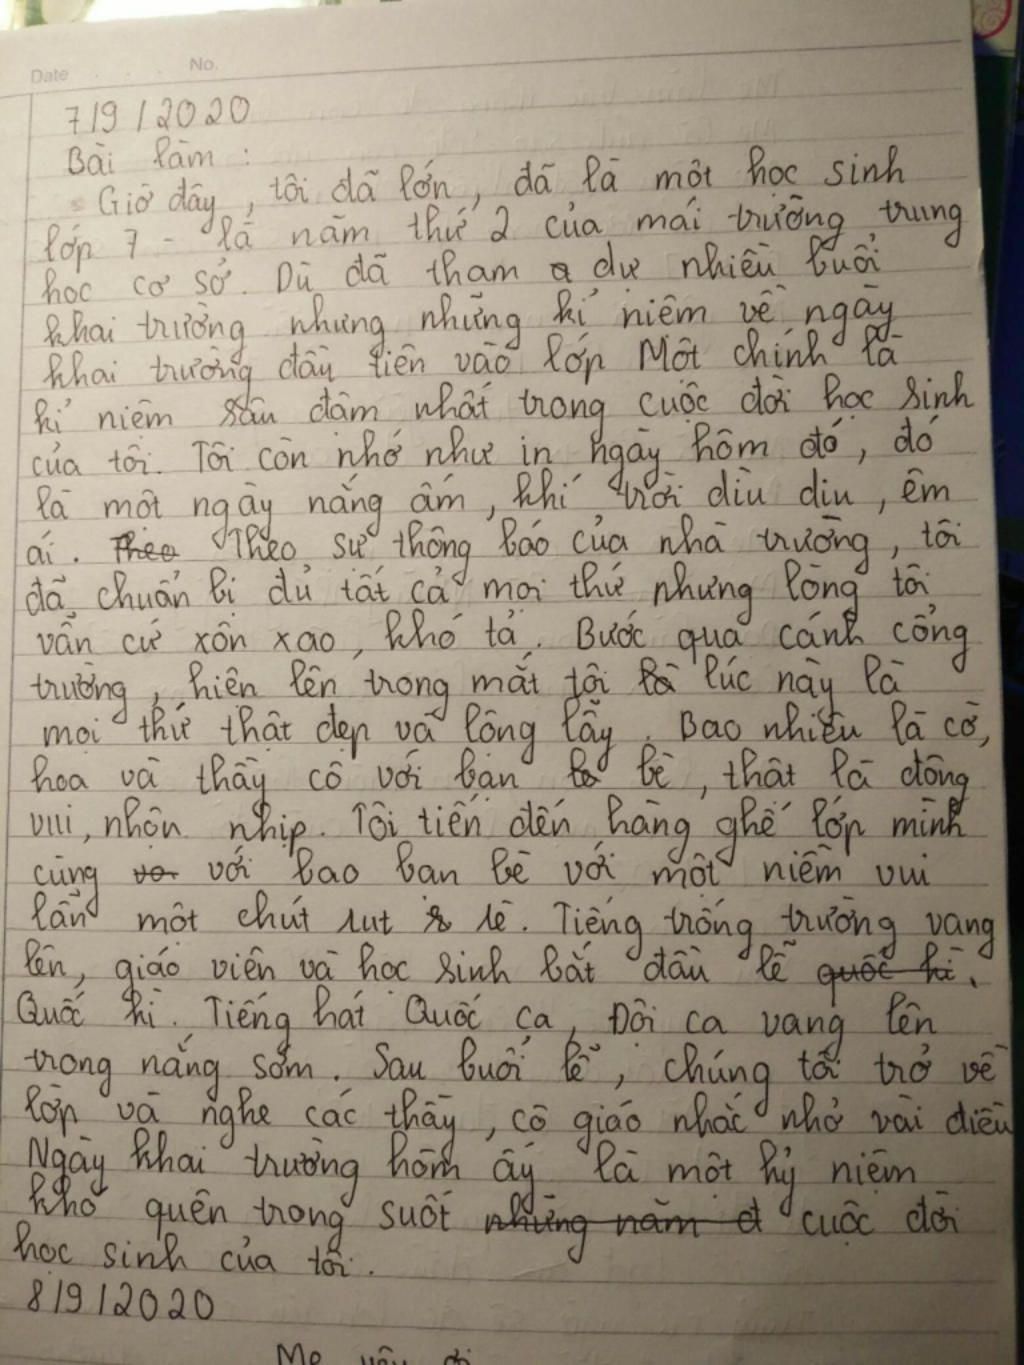 Date No.
7/9/2020
Bài làm :
Giờ đây, tôi đã lớn, đã là một học sinh
lớp 7 - là năm thứ 2 của mái trường trung
học cơ sở. Dù đã tham dự nhiều buổi
khai trường nhưng những kỉ niệm về ngày
khai trường đầu tiên vào lớp Một chính là
kỉ niệm sâu đậm nhất trong cuộc đời học sinh
của tôi. Tôi còn nhớ như in ngày hôm đó, đó
là một ngày nắng ấm, khí trời dìu dịu, êm
ái. Theo Theo sự thông báo của nhà trường, tôi
đã chuẩn bị đủ tất cả mọi thứ nhưng lòng tôi
vẫn cứ xôn xao, khó tả. Bước qua cánh cổng
trường, hiện lên trong mắt tôi là lúc này là
mọi thứ thật đẹp và lộng lẫy. Bao nhiêu là cờ,
hoa và thầy cô với bạn bè, thật là đông
vui, nhộn nhịp. Tôi tiến đến hàng ghế lớp mình
cùng với bao bạn bè với một niềm vui
lẫn một chút rụt rè. Tiếng trống trường vang
lên, giáo viên và học sinh bắt đầu lễ quốc kì.
Quốc kì. Tiếng hát Quốc ca, Đội ca vang lên
trong nắng sớm. Sau buổi lễ, chúng tôi trở về
lớp và nghe các thầy, cô giáo nhắc nhở vài điều
Ngày khai trường hôm ấy là một kỷ niệm
khó quên trong suốt những năm cuộc đời
học sinh của tôi.
8/9/2020
Mẹ yêu ơi